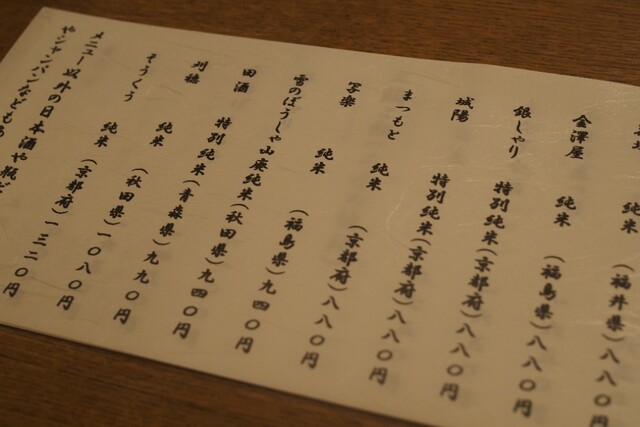 純米 (福井県) 八八〇円
金澤屋 純米 (福島県) 八八〇円
銀しゃり 特別純米 (京都府) 八八〇円
城陽 特別純米 (京都府) 八八〇円
まつもと 純米 (京都府) 八八〇円
写楽 純米 (福島県) 八八〇円
雪のぼうしゃ 山廃純米 (秋田県) 九四〇円
田酒 特別純米 (青森県) 九四〇円
刈穂 純米 (秋田県) 九九〇円
そうくう 純米 (京都府) 一〇八〇円
一三二〇円
メニュー以外の日本酒や瓶
やシャンパンなどもあ